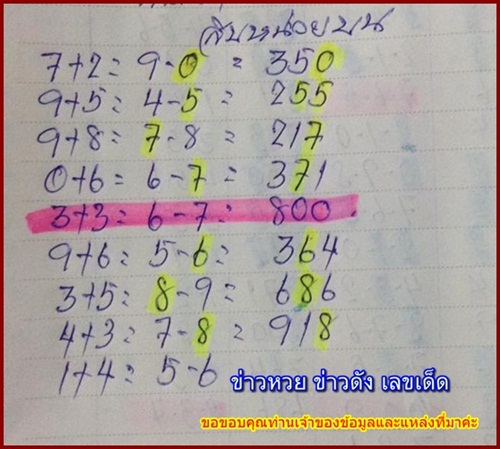 สิบหน่อยบน
7+2= 9-0 = 350
9+5= 4-5 = 255
9+8= 7-8 = 217
0+6= 6-7 = 371
3+3= 6-7= 800
9+6= 5-6= 364
3+5= 8-9= 686
4+3= 7-8 = 918
1+4= 5-6
ข่าวหวย ข่าวดัง เลขเด็ด
ขอขอบคุณท่านเจ้าของข้อมูลและแหล่งที่มาค่ะ